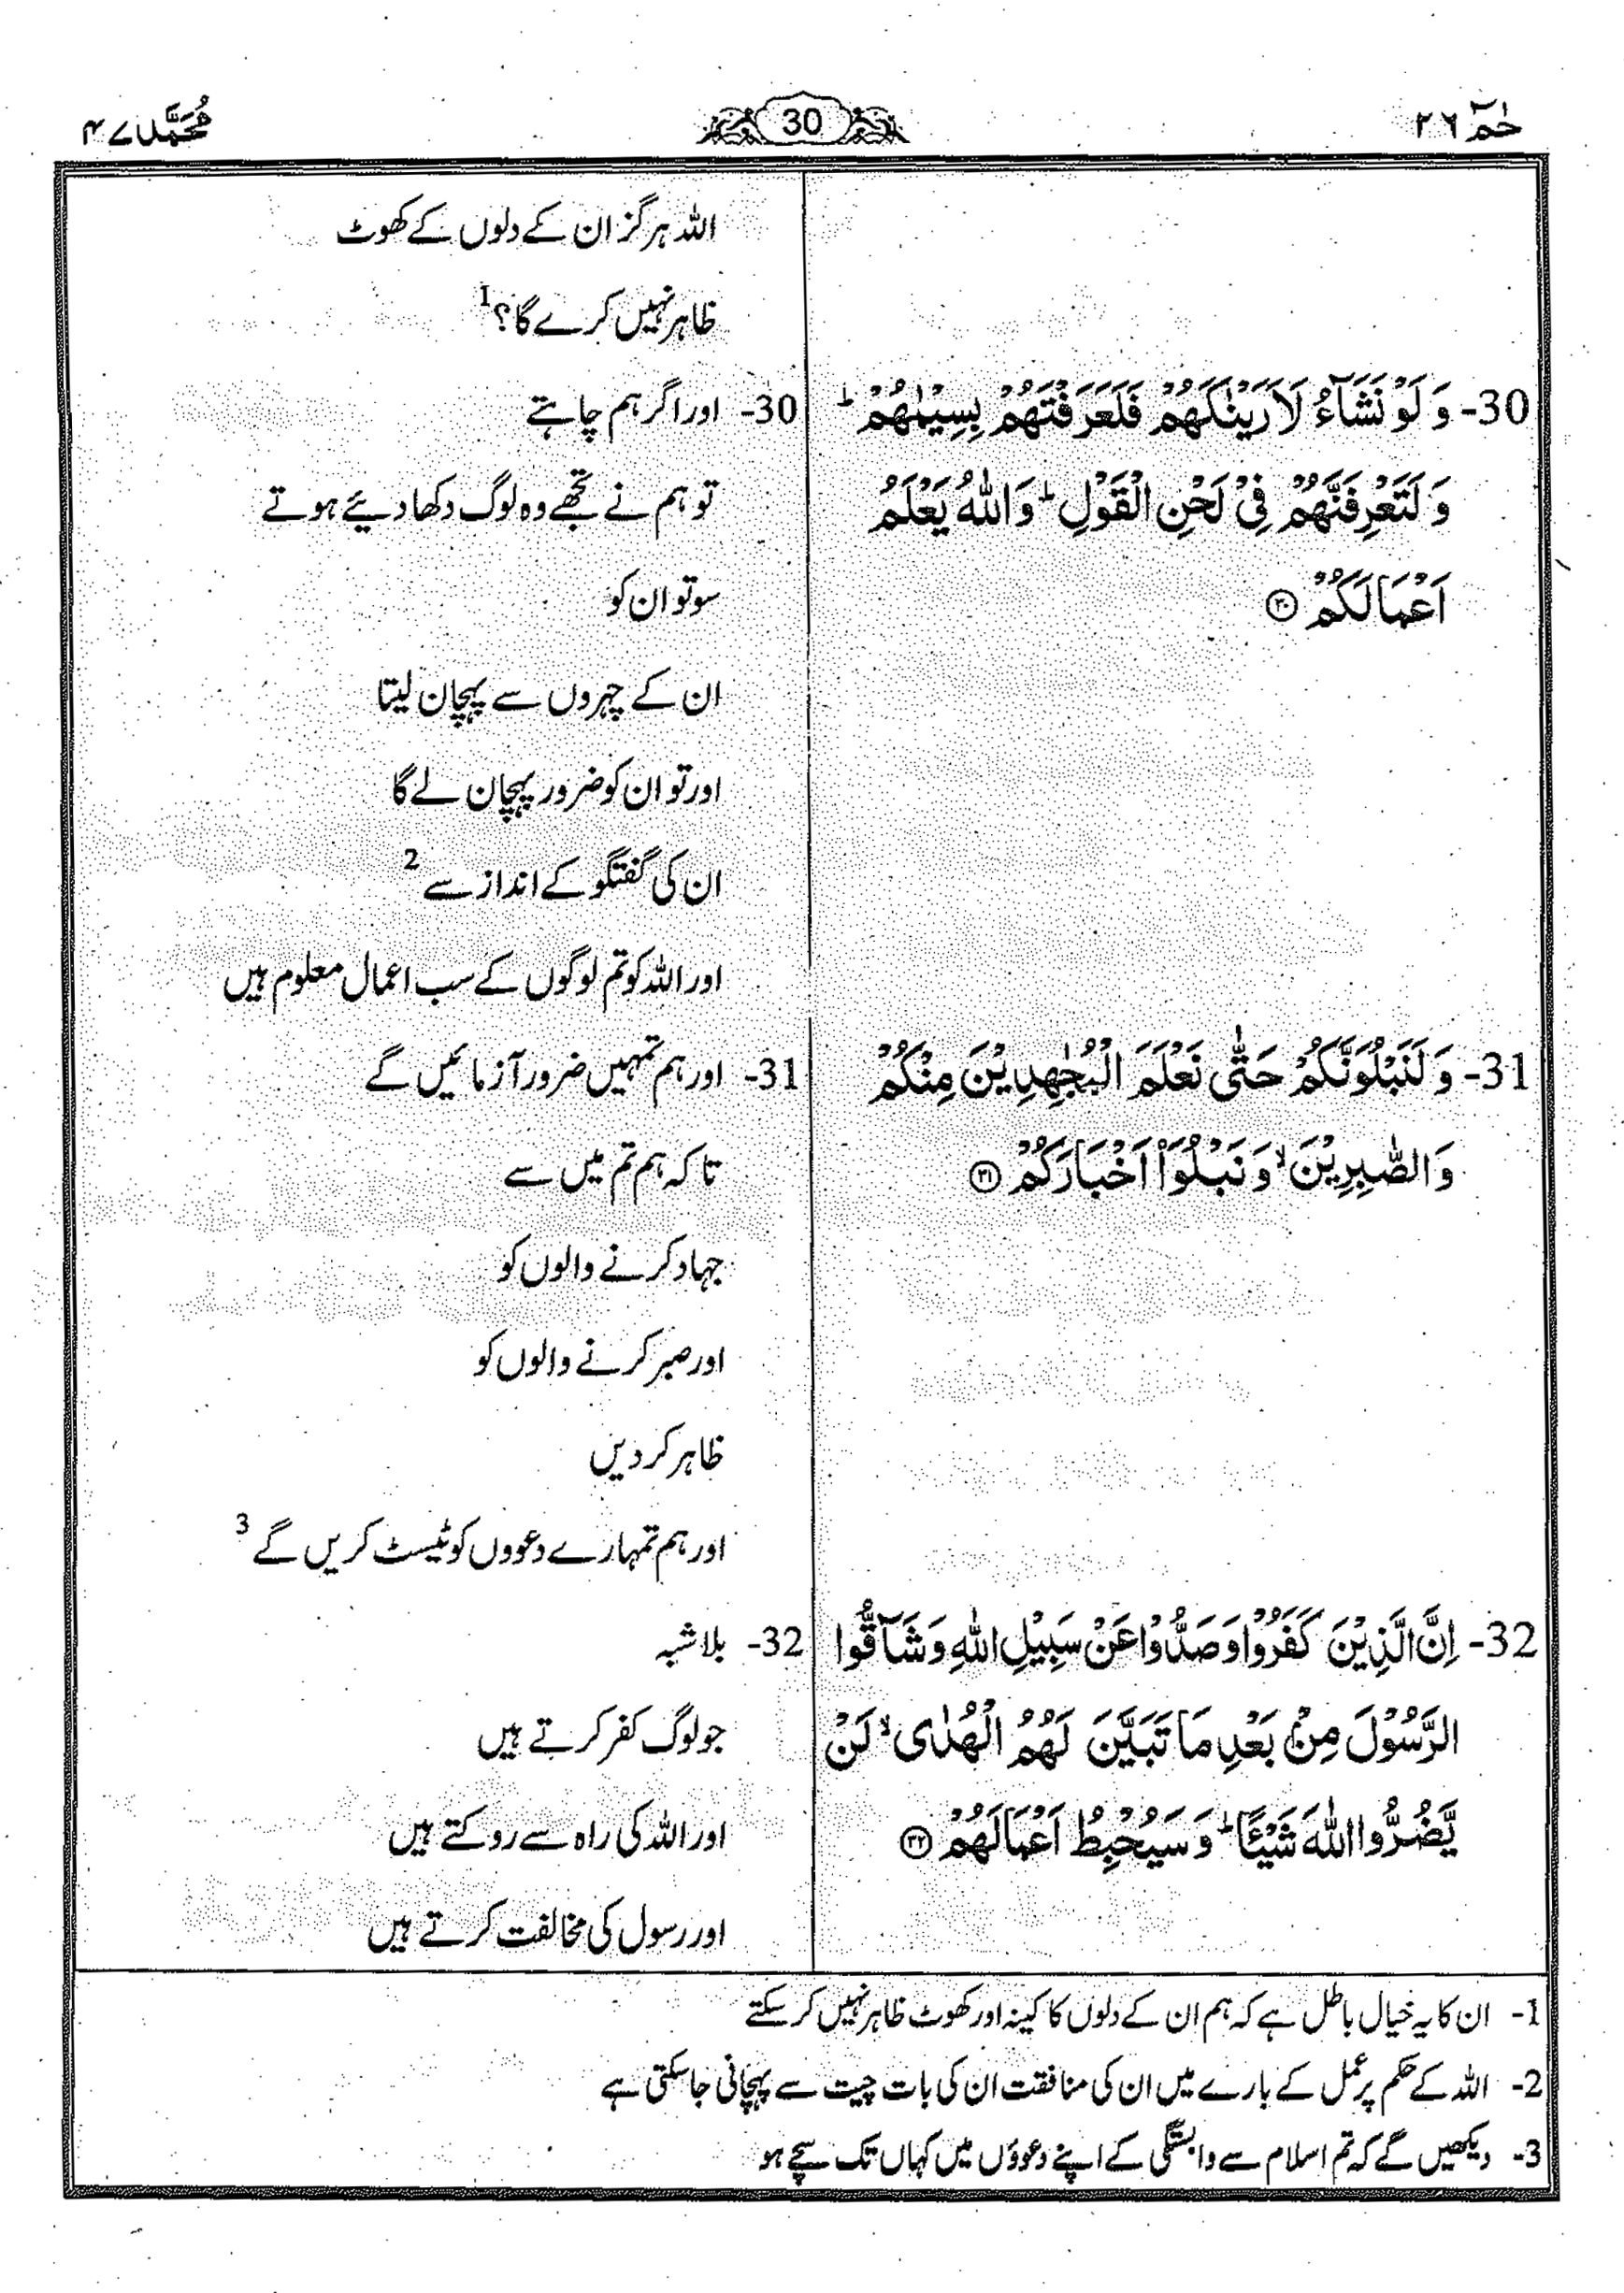 حٰمٓ ٢٦
30
مُحَمَّد ٤٧
اللہ ہرگز ان کے دلوں کے کھوٹ
ظاہر نہیں کرے گا؟ 1
30- وَ لَوْ نَشَآءُ لَاَرَيْنٰكَهُمْ فَلَعَرَفْتَهُمْ بِسِيْمٰىهُمْ ؕ
وَ لَتَعْرِفَنَّهُمْ فِيْ لَحْنِ الْقَوْلِ ؕ وَ اللّٰهُ يَعْلَمُ
اَعْمَالَكُمْ ﴿٣٠﴾
30- اور اگر ہم چاہتے
تو ہم نے تجھے وہ لوگ دکھا دیئے ہوتے
سو تو ان کو
ان کے چہروں سے پہچان لیتا
اور تو ان کو ضرور پہچان لے گا
ان کی گفتگو کے انداز سے 2
اور اللہ کو تم لوگوں کے سب اعمال معلوم ہیں
31- وَ لَنَبْلُوَنَّكُمْ حَتّٰى نَعْلَمَ الْمُجٰهِدِيْنَ مِنْكُمْ
وَ الصّٰبِرِيْنَ ۙ وَ نَبْلُوَا۟ اَخْبَارَكُمْ ﴿٣١﴾
31- اور ہم تمہیں ضرور آزمائیں گے
تا کہ ہم تم میں سے
جہاد کرنے والوں کو
اور صبر کرنے والوں کو
ظاہر کر دیں
اور ہم تمہارے دعووں کو ٹیسٹ کریں گے 3
32- اِنَّ الَّذِيْنَ كَفَرُوْا وَ صَدُّوْا عَنْ سَبِيْلِ اللّٰهِ وَ شَآقُّوا
الرَّسُوْلَ مِنْۢ بَعْدِ مَا تَبَيَّنَ لَهُمُ الْهُدٰى ۙ لَنْ
يَّضُرُّوا اللّٰهَ شَيْـًٔا ؕ وَ سَيُحْبِطُ اَعْمَالَهُمْ ﴿٣٢﴾
32- بلاشبہ
جو لوگ کفر کرتے ہیں
اور اللہ کی راہ سے روکتے ہیں
اور رسول کی مخالفت کرتے ہیں
1- ان کا یہ خیال باطل ہے کہ ہم ان کے دلوں کا کینہ اور کھوٹ ظاہر نہیں کر سکتے
2- اللہ کے حکم پر عمل کے بارے میں ان کی منافقت ان کی بات چیت سے پہچانی جا سکتی ہے
3- دیکھیں گے کہ تم اسلام سے وابستگی کے اپنے دعوؤں میں کہاں تک سچے ہو